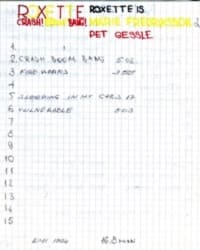 ROXETTE ROXETTE IS
CRASH! BOOM! BANG! MARIE FREDRIKSSON
PER GESSLE
1.
2. CRASH BOOM BANG 5:02
3 FIREWORKS
4
5 SLEEPING IN MY CAR 3
6 VULNERABLE
7
8
9
10
11
12
13
14
15
EMI 1994